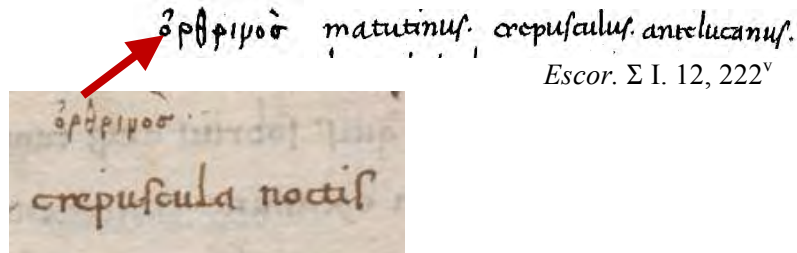 ὄρθριμοσ matutinus. crepusculus. antelucanus.
Escor. Σ I. 12, 222v
ὄρθριμοσ
crepuscula noctis